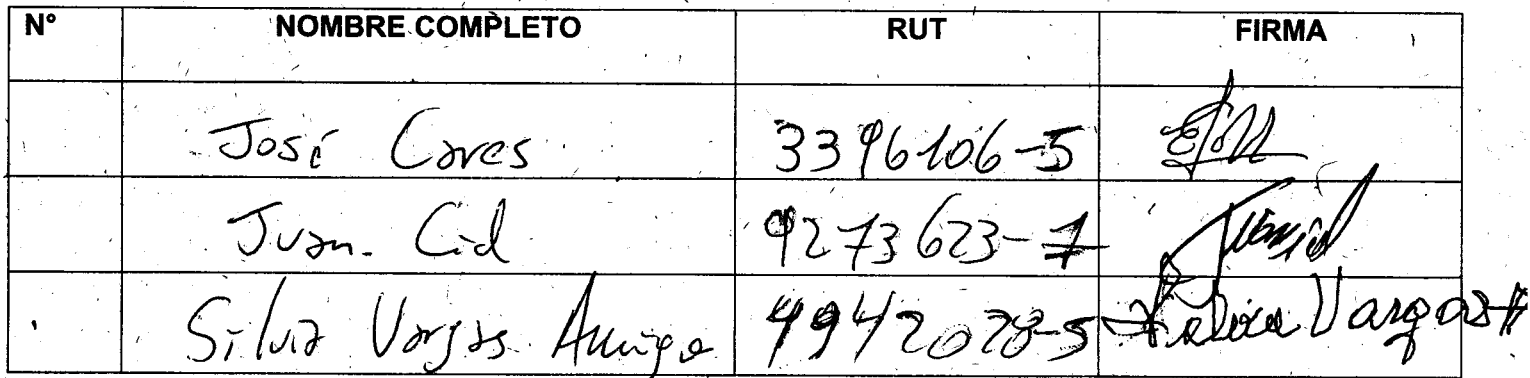 N° NOMBRE COMPLETO RUT FIRMA
José Cares 3396106-5
Juan. Cid 9273623-7 Juancid
Silvia Vargas Amigo 4942028-5 Silvia Vargas A